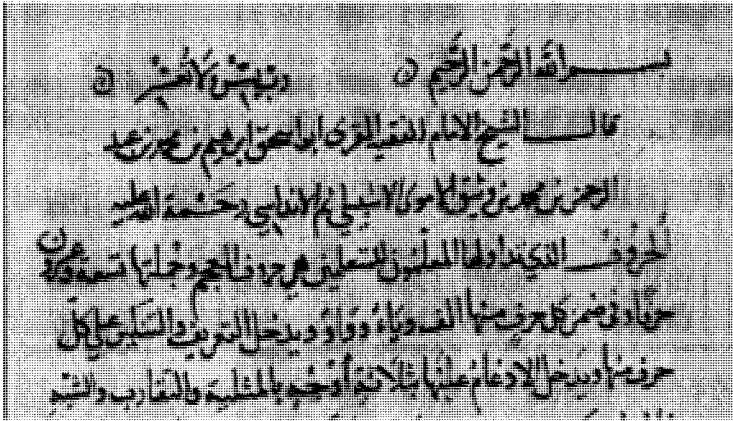 بسم الله الرحمن الرحيم رب يسر ولا تعسر
قال الشيخ الامام الفقيه المقرئ ابو اسحق ابرهيم بن محمد بن عبد
الرحمن بن محمد بن وثيق الاموي الاشبيلي ثم الاندلسي رحمة الله عليه
الحروف الذي تداولها المعلمون للمتعلمين هي حروف المعجم وجملتها تسعة وعشرون
حرفا وفي ضمن كل حرف منها الف وياء وواو ويدخل التعريف والتنكير على كل
حرف منها ويدخل الادغام عليها بثلاثة أوجه بالمثلية والتقارب والشبه